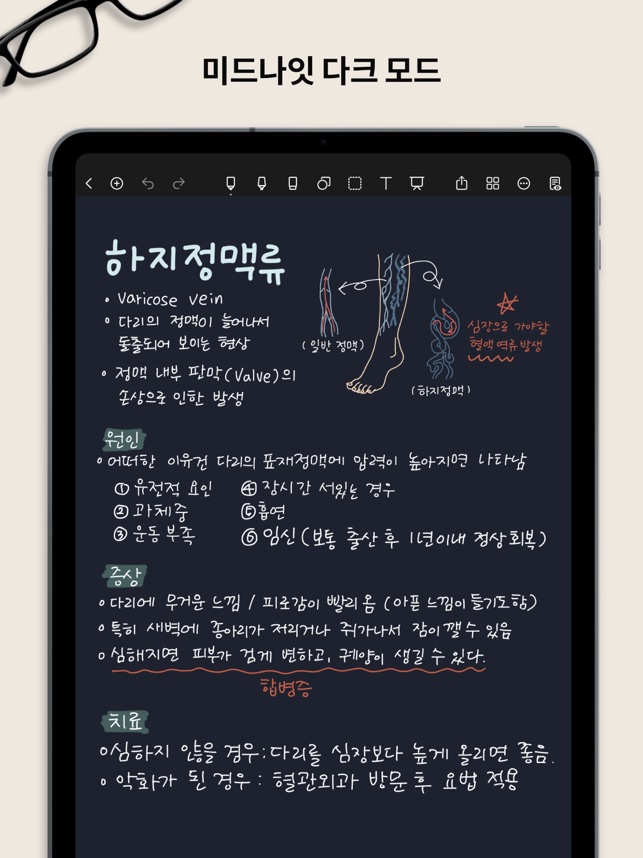 미드나잇 다크 모드
하지정맥류
• Varicose vein
• 다리의 정맥이 늘어나서
돌출되어 보이는 현상
• 정맥 내부 판막(Valve)의
손상으로 인한 발생
(일반 정맥)
(하지정맥)
심장으로 가야할
혈액 역류 발생
원인
• 어떠한 이유건 다리의 표재정맥에 압력이 높아지면 나타남
① 유전적 요인
④ 장시간 서있는 경우
② 과체중
⑤ 흡연
③ 운동 부족
⑥ 임신 (보통 출산 후 1년이내 정상회복)
증상
• 다리에 무거운 느낌 / 피로감이 빨리 옴 (아픈 느낌이 들기도함)
• 특히 새벽에 종아리가 저리거나 쥐가나서 잠이 깰 수 있음
• 심해지면 피부가 검게 변하고, 궤양이 생길 수 있다.
합병증
치료
• 심하지 않을 경우: 다리를 심장보다 높게 올리면 좋음.
• 악화가 된 경우: 혈관외과 방문 후 요법 적용